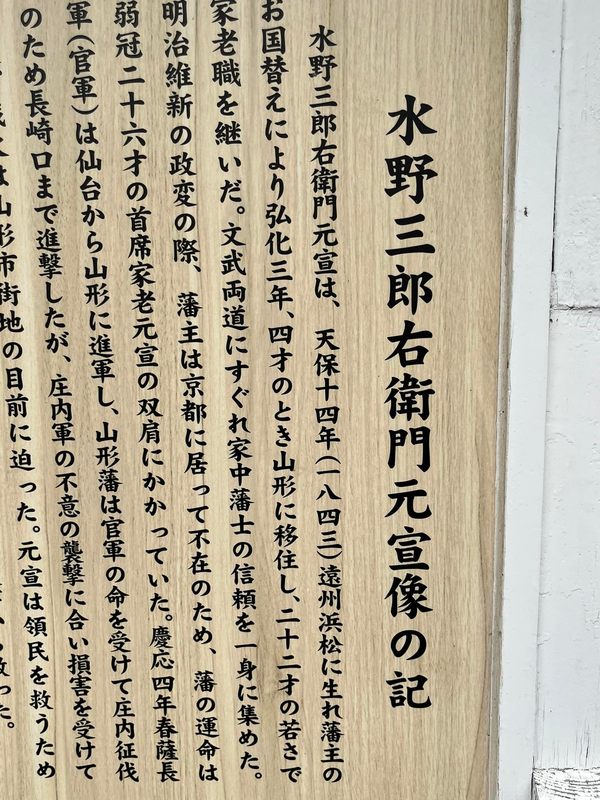 水野三郎右衛門元宣像の記
水野三郎右衛門元宣は、天保十四年(一八四三)遠州浜松に生れ藩主の
お国替えにより弘化三年、四才のとき山形に移住し、二十二才の若さで
家老職を継いだ。文武両道にすぐれ家中藩士の信頼を一身に集めた。
明治維新の政変の際、藩主は京都に居って不在のため、藩の運命は
弱冠二十六才の首席家老元宣の双肩にかかっていた。慶応四年春薩長
軍(官軍)は仙台から山形に進軍し、山形藩は官軍の命を受けて庄内征伐
のため長崎口まで進撃したが、庄内軍の不意の襲撃に合い損害を受けて
は山形市街地の目前に迫った。元宣は領民を救うため
った。